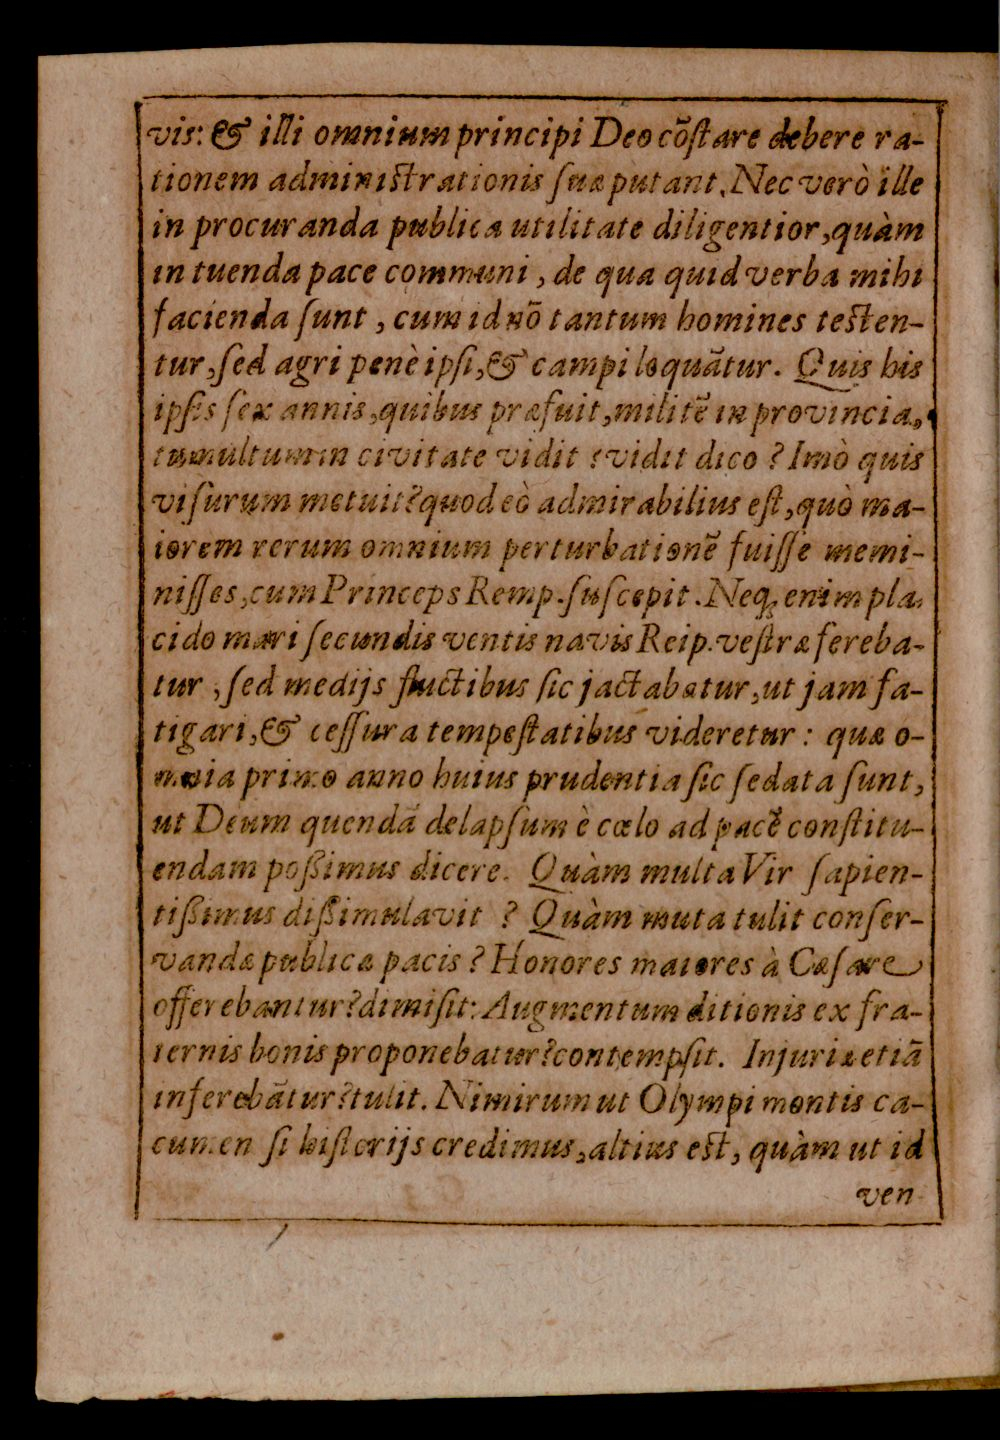 vis: & illi omnium principi Deo cõſtare debere ra-
tionem adminiſtrationis ſuæ putant. Nec verò ille
in procuranda publica utilitate diligentior, quàm
in tuenda pace communi, de qua quid verba mihi
facienda ſunt, cum id nõ tantum homines teſten-
tur, ſed agri penè ipſi, & campi loquãtur. Quis his
ipſis ſex annis, quibus præfuit, militẽ in provincia,
tumultum in civitate vidit? vidit dico? Imò quis
viſurum metuit? quod eò admirabilius eſt, quò ma-
iorem rerum omnium perturbationẽ fuiſſe memi-
niſſes, cum Princeps Remp. ſuſcepit. Neq; enim pla-
cido mari ſecundis ventis navis Reip. veſtræ fereba-
tur, ſed medijs fluctibus ſic jactabatur, ut jam fa-
tigari, & ceſſura tempeſtatibus videretur: quæ o-
mnia primo anno huius prudentia ſic ſedata ſunt,
ut Deum quendã delapſum è cœlo ad pacẽ conſtitu-
endam poßimus dicere. Quàm multa Vir ſapien-
tißimus dißimulavit? Quàm muta tulit conſer-
vandæ publicæ pacis? Honores maiores à Cæſare
offerebantur? dimiſit: Augmentum ditionis ex fra-
ternis bonis proponebatur? contempſit. Injuriæ etiã
inferebãtur? tulit. Nimirum ut Olympi montis ca-
cumen ſi hiſtorijs credimus, altius eſt, quàm ut id
ven